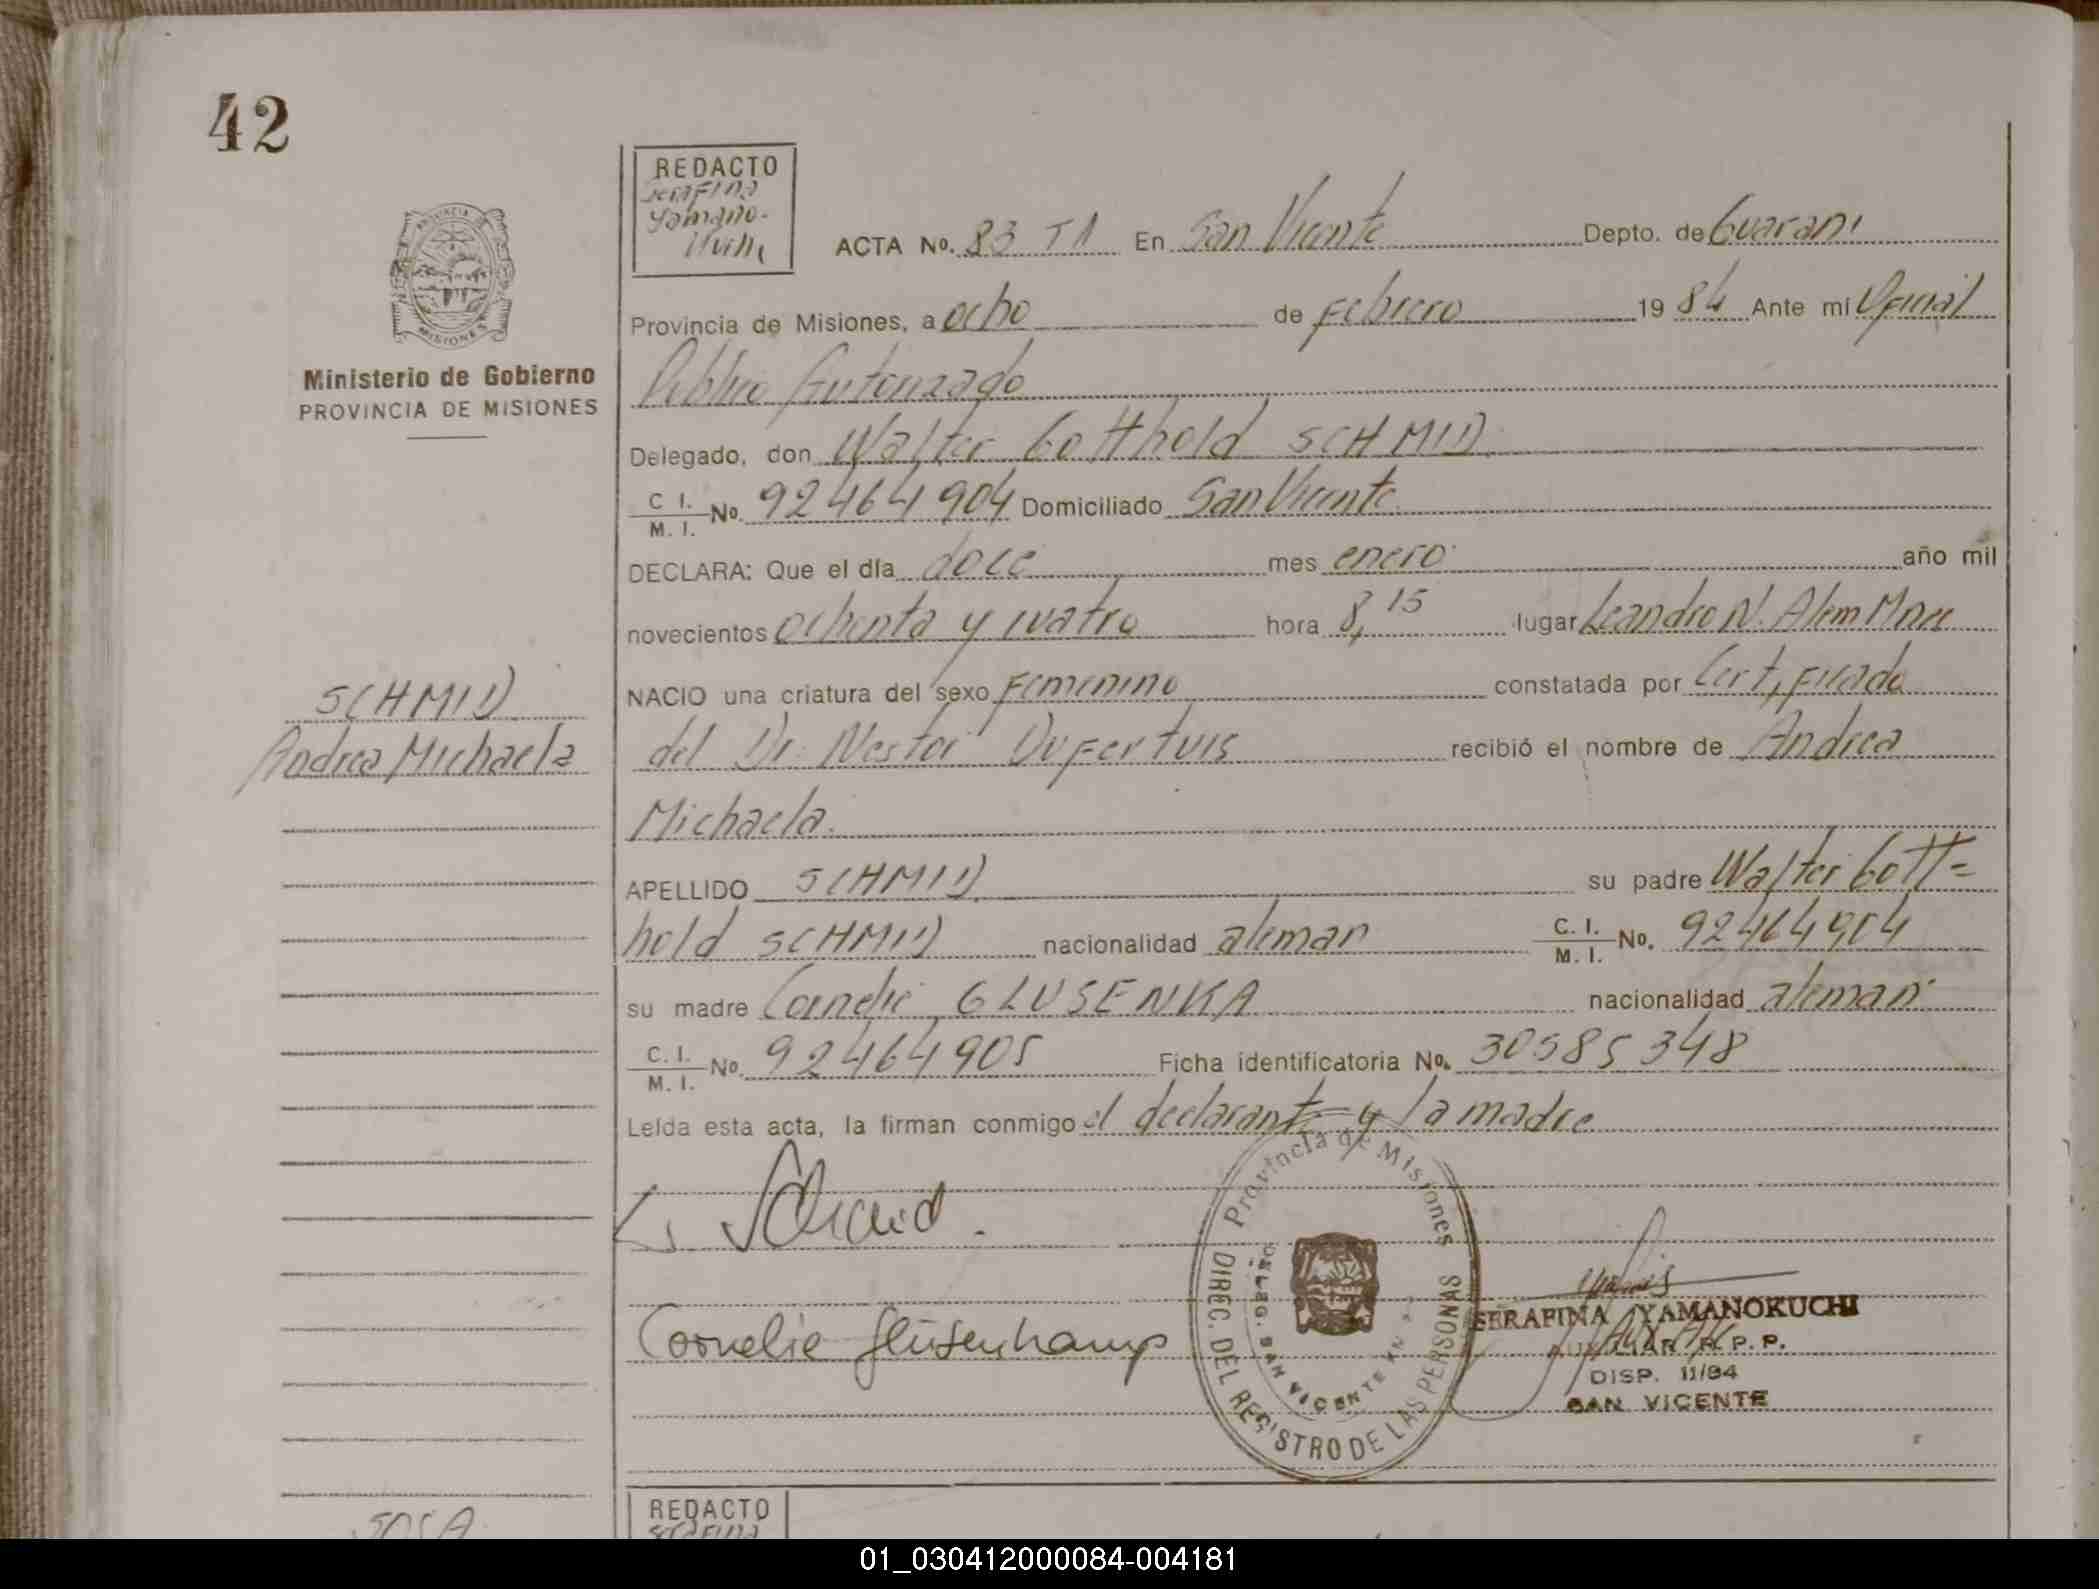 42
REDACTO
Serafina
Yamano-
kuchi
ACTA No. 83 T1 En San Vicente Depto. de Guarani
PROVINCIA DE
MISIONES
Provincia de Misiones, a ocho de Febrero 1984 Ante mí Oficial
Público Autorizado
Ministerio de Gobierno
PROVINCIA DE MISIONES
Delegado, don Walter Gotthold SCHMID
C I. / M. I. No. 92464904 Domiciliado San Vicente
DECLARA: Que el día doce mes enero año mil
novecientos ochenta y cuatro hora 8,15 lugar Leandro N. Alem Mnes
NACIO una criatura del sexo Femenino constatada por Certificado
SCHMID
Andrea Michaela
del Dr. Nestor Dufertuis recibió el nombre de Andrea
Michaela.
APELLIDO SCHMID su padre Walter Gott=
hold SCHMID nacionalidad aleman C. I. / M. I. No. 92464904
su madre GLUSENKA nacionalidad aleman
C. I. / M. I. No. 92464905 Ficha identificatoria No. 30585348
Leída esta acta, la firman conmigo el declarante y la madre
Schmid
Cornelie Glüsenkamp
Provincia de Misiones
DIREC. DEL REGISTRO DE LAS PERSONAS
SAN VICENTE
SERAFINA YAMANOKUCHI
AUXILIAR R. P. P.
DISP. 11/84
SAN VICENTE
REDACTO
Serafina
SOSA
01_030412000084-004181